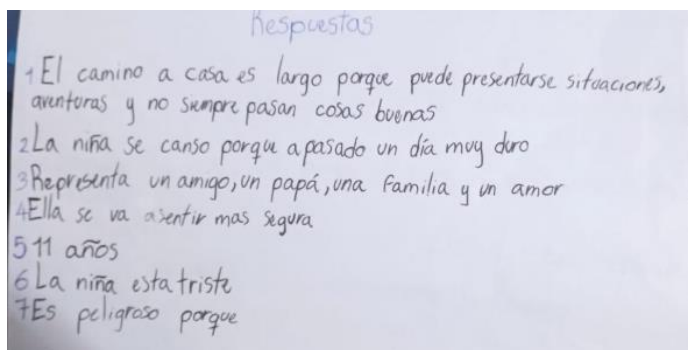 Respuestas
1 El camino a casa es largo porque puede presentarse situaciones,
aventuras y no siempre pasan cosas buenas
2 La niña se canso porque apasado un día muy duro
3 Representa un amigo, un papá, una familia y un amor
4 Ella se va asentir mas segura
5 11 años
6 La niña esta triste
7 Es peligroso porque